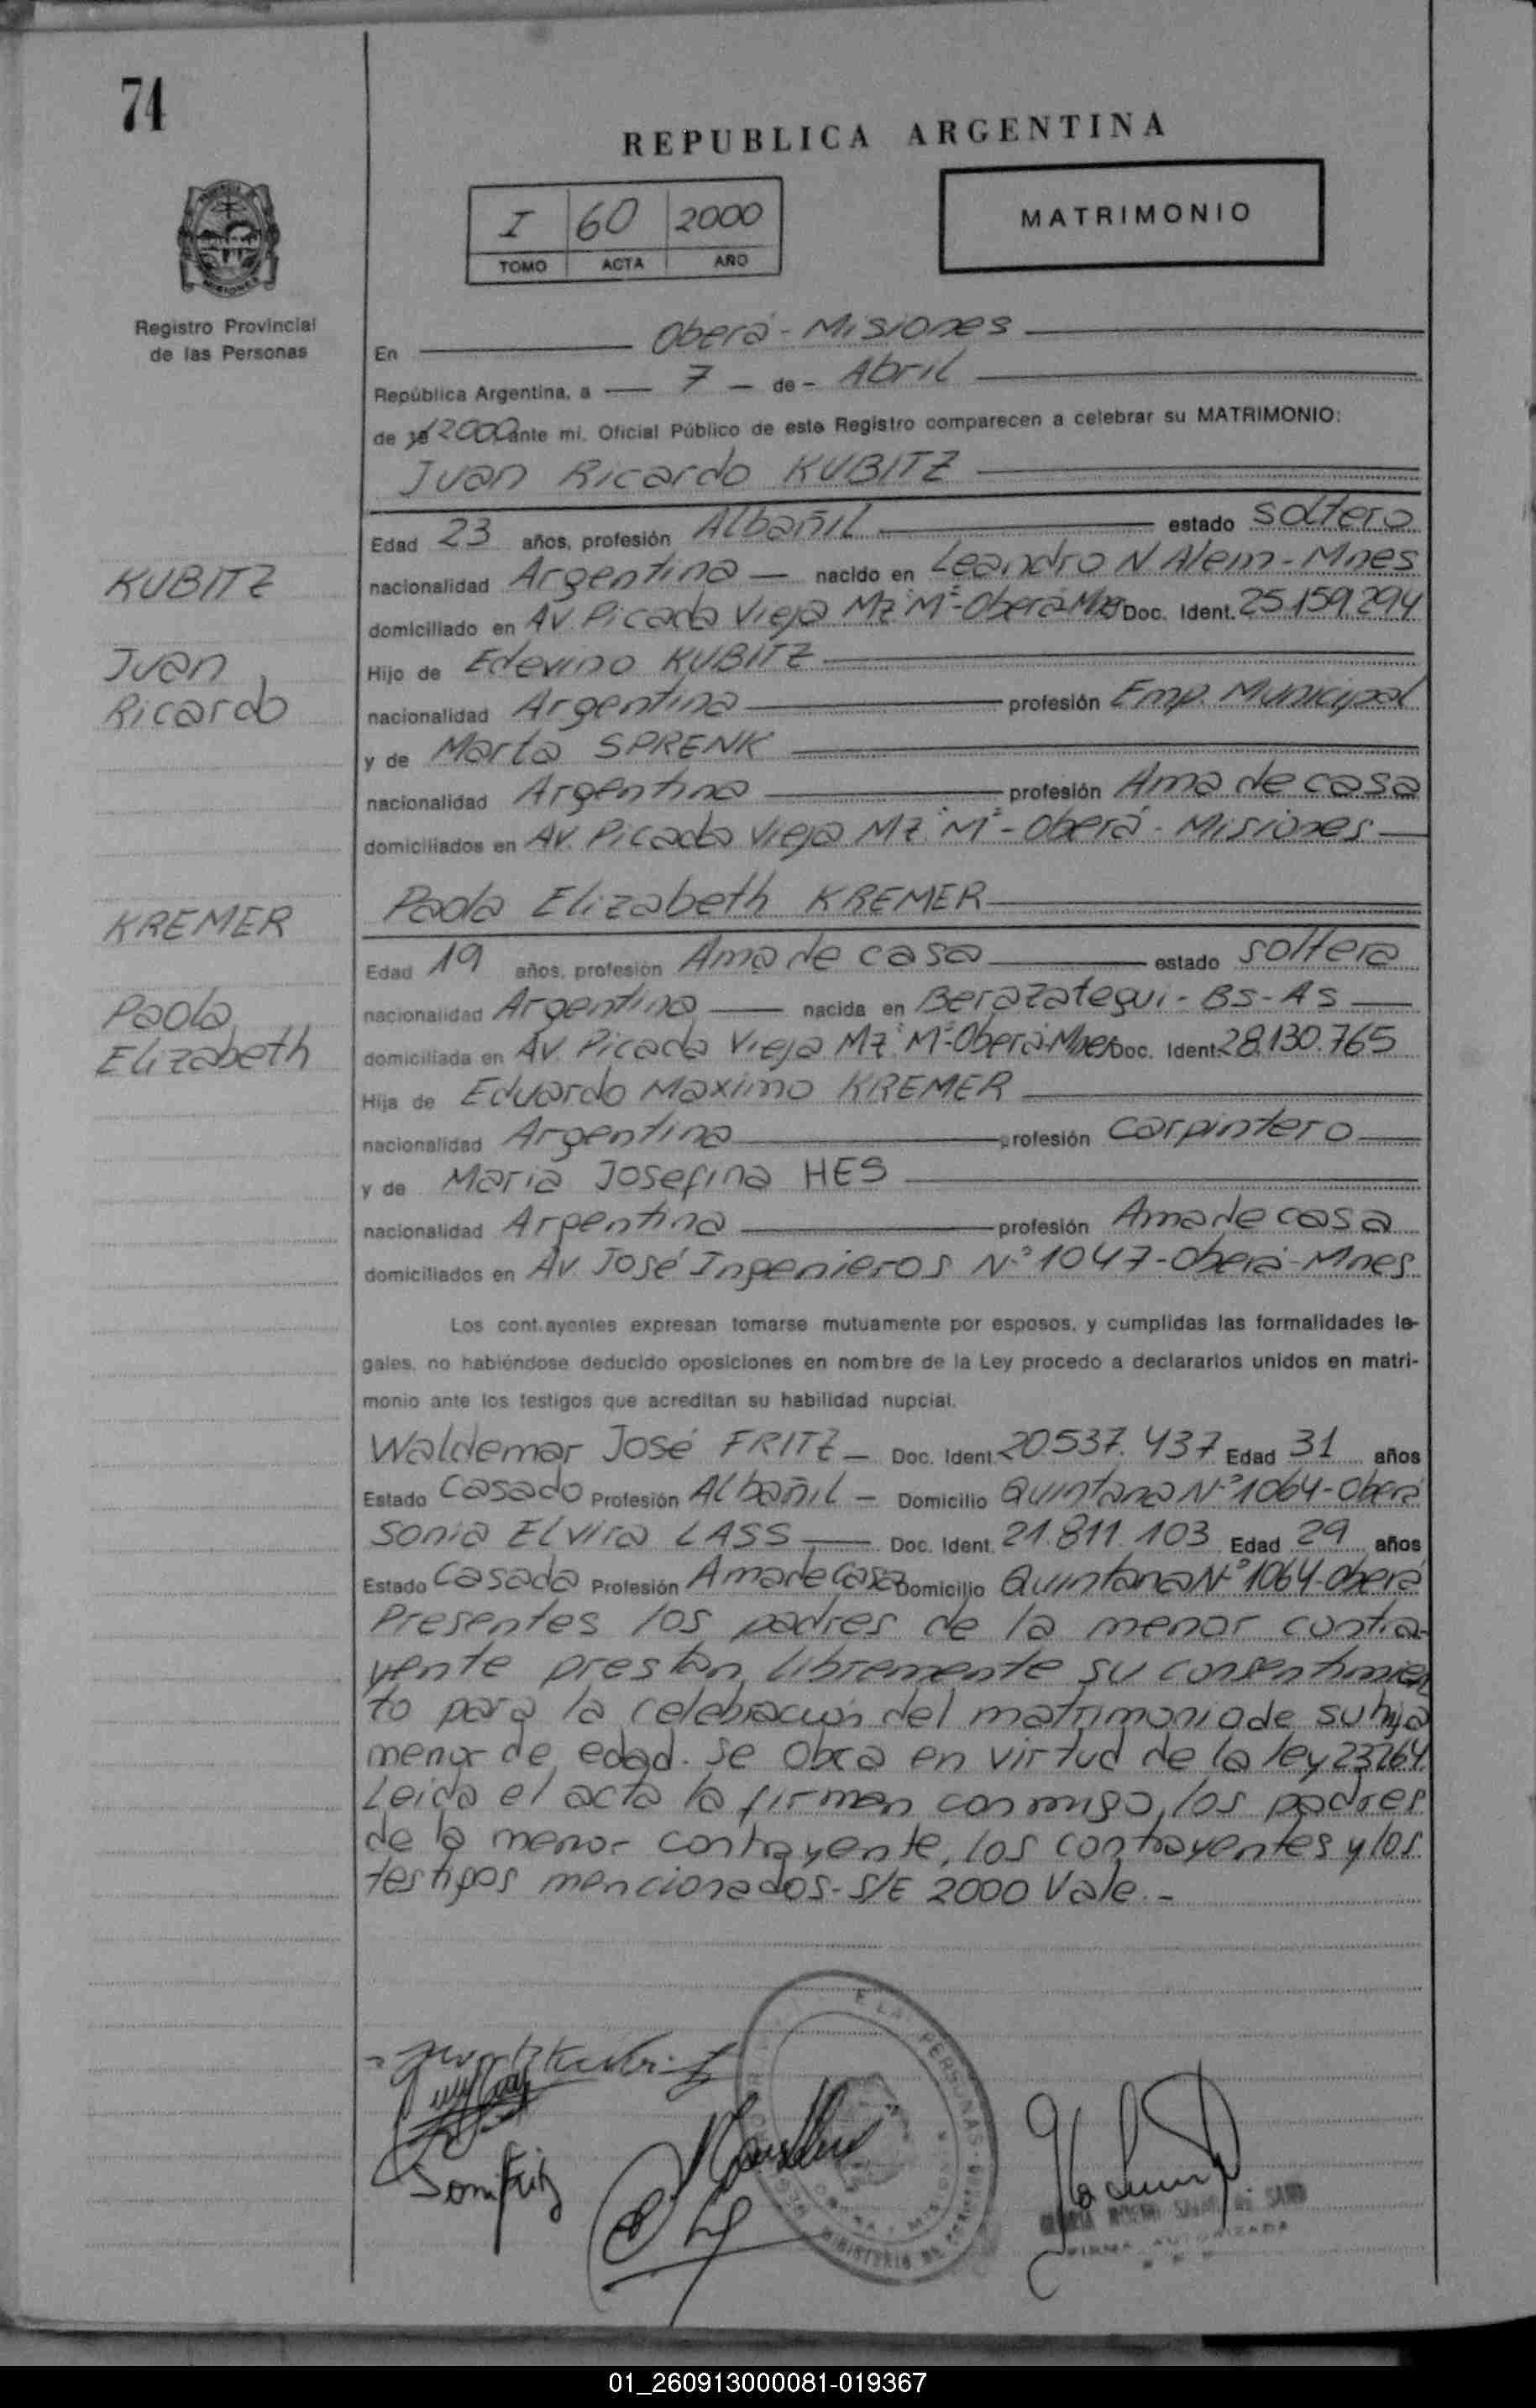 74
REPUBLICA ARGENTINA
I 60 2000
TOMO ACTA AÑO
MATRIMONIO
MISIONES
Registro Provincial
de las Personas
En Oberá - Misiones
República Argentina, a 7 de Abril
de 2000 ante mi, Oficial Público de este Registro comparecen a celebrar su MATRIMONIO:
Juan Ricardo KUBITZ
Edad 23 años, profesión Albañil estado soltero
KUBITZ
nacionalidad Argentina nacido en Leandro N Alem - Mnes
domiciliado en Av. Picada Vieja Mz "M" - Oberá Mnes Doc. Ident. 25.159.294
Juan
Ricardo
Hijo de Edevino KUBITZ
nacionalidad Argentina profesión Emp. Municipal
y de Marta SPRENK
nacionalidad Argentina profesión Ama de casa
domiciliados en Av. Picada Vieja Mz "M" - Oberá - Misiones
KREMER
Paola Elizabeth KREMER
Edad 19 años, profesión Ama de casa estado soltera
Paola
Elizabeth
nacionalidad Argentina nacida en Berazategui - Bs - As
domiciliada en Av. Picada Vieja Mz "M" - Oberá - Mnes Doc. Ident. 28.130.765
Hija de Eduardo Maximo KREMER
nacionalidad Argentina profesión Carpintero
y de Maria Josefina HES
nacionalidad Argentina profesión Ama de casa
domiciliados en Av. José Ingenieros Nº 1047 - Oberá - Mnes
Los contrayentes expresan tomarse mutuamente por esposos, y cumplidas las formalidades le-
gales, no habiéndose deducido oposiciones en nombre de la Ley procedo a declararlos unidos en matri-
monio ante los testigos que acreditan su habilidad nupcial.
Waldemar José FRITZ - Doc. Ident. 20.537.437 Edad 31 años
Estado Casado Profesión Albañil - Domicilio Quintana Nº 1064 - Oberá
Sonia Elvira LASS Doc. Ident. 21.811.103 Edad 29 años
Estado Casada Profesión Ama de Casa Domicilio Quintana Nº 1064 - Oberá
Presentes los padres de la menor contra-
yente prestan libremente su consentimien
to para la celebración del matrimonio de su hija
menor de edad. Se obra en virtud de la ley 23264.
Leida el acta la firman conmigo, los padres
de la menor contrayente, los contrayentes y los
testigos mencionados - S/E 2000 Vale. -
01_260913000081-019367